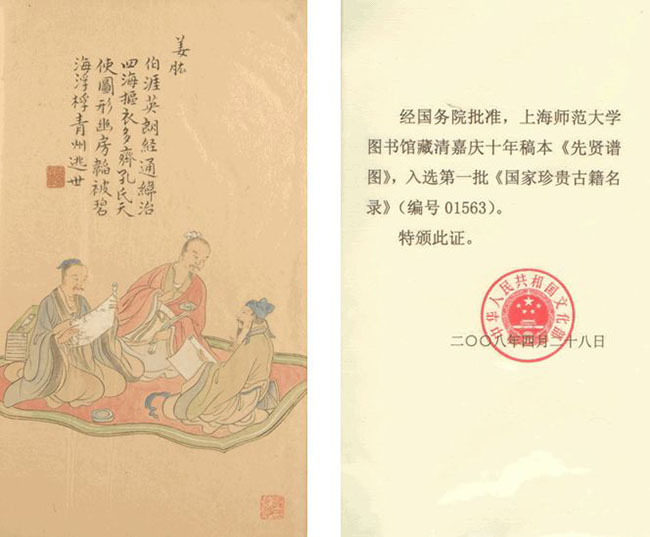 姜肱
伯涯英朗經通緯治
四海摳衣多齊孔氏天
使圖形幽房韜被碧
海浮桴青州逃世
经国务院批准，上海师范大学
图书馆藏清嘉庆十年稿本《先贤谱
图》，入选第一批《国家珍贵古籍名
录》（编号 01563）。
特颁此证。
中华人民共和国文化部
二〇〇八年四月二十八日